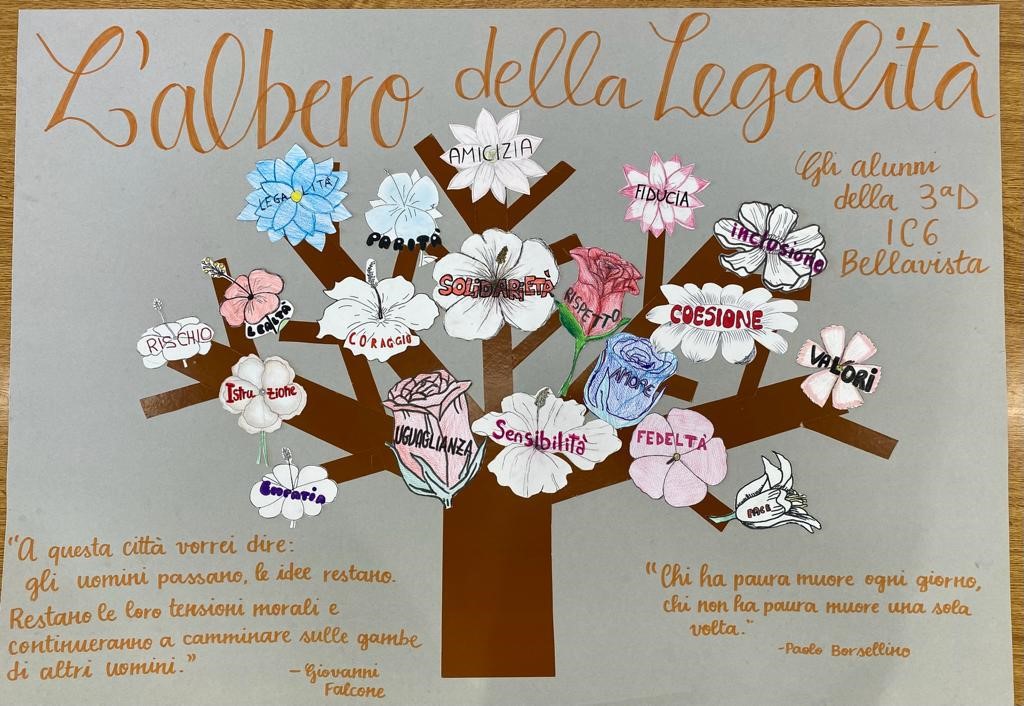 L'albero della Legalità
Gli alunni
della 3ªD
IC6
Bellavista
AMICIZIA
LEGALITÀ
PARITÀ
FIDUCIA
inclusione
SOLIDARIETÀ
RISPETTO
LEALTÀ
CORAGGIO
COESIONE
RISCHIO
VALORI
AMORE
Istruzione
UGUAGLIANZA
Sensibilità
FEDELTÀ
EMPATIA
PACE
"A questa città vorrei dire:
gli uomini passano, le idee restano.
Restano le loro tensioni morali e
continueranno a camminare sulle gambe
di altri uomini."
-Giovanni
Falcone
"Chi ha paura muore ogni giorno,
chi non ha paura muore una sola
volta."
-Paolo Borsellino